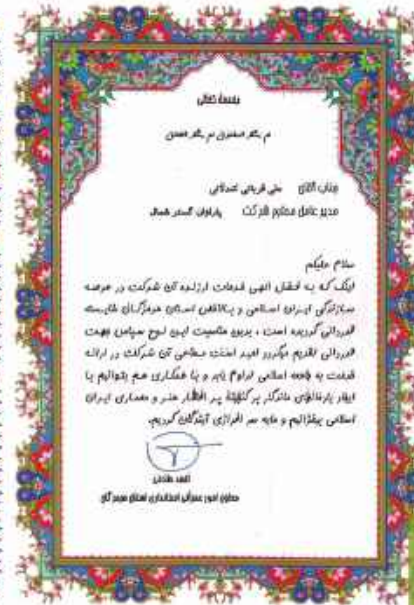 بسمه تعالی
جناب آقای علی قربانی
مدیر عامل محترم شرکت پارلوان گستر شمال
سلام علیکم
اینک که به فضل الهی خدمات ارزنده آن شرکت در عرصه
سازندگی ایران اسلامی و بالاخص استان هرمزگان شایسته
قدردانی گردیده است ، بدین مناسبت این لوح سپاس جهت
قدردانی تقدیم میگردد امید است مساعی آن شرکت در ارائه
خدمت به جامعه اسلامی تداوم یابد و با همکاری هم بتوانیم با
ایجاد یادمانهای ماندگار بر گنجینه پر افتخار هنر و معماری ایران
اسلامی بیفزائیم و مایه سر افرازی آیندگان گردیم.
معاون امور عمرانی استانداری استان هرمزگان